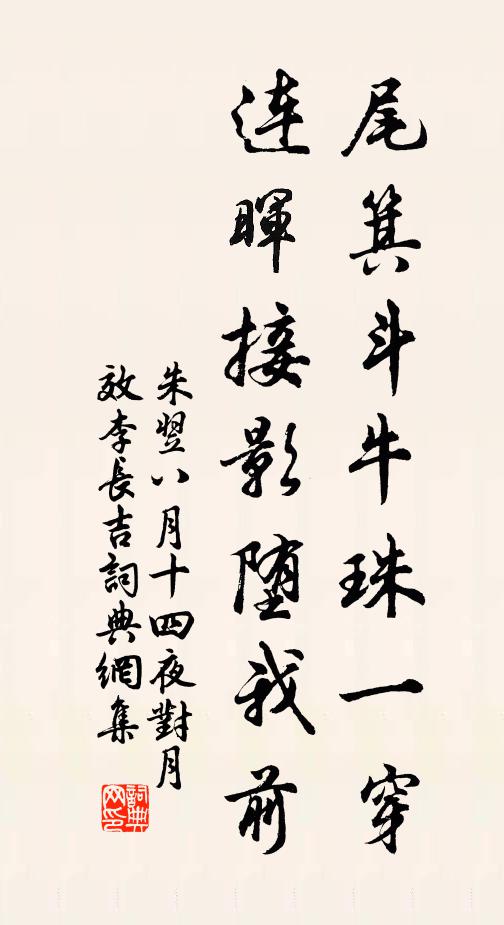 尾箕斗牛珠一穿
連暉接影墮我前
朱翌八月十四夜對月
效李長吉詞典網集
詞典網印